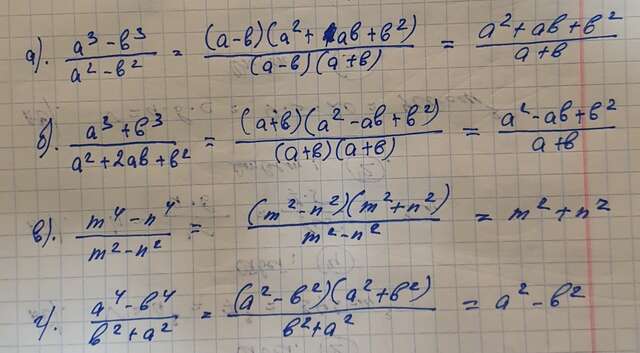 а). (a³ - b³)/(a² - b²) = ((a-b)(a² + ab + b²))/((a-b)(a+b)) = (a² + ab + b²)/(a+b)
б). (a³ + b³)/(a² + 2ab + b²) = ((a+b)(a² - ab + b²))/((a+b)(a+b)) = (a² - ab + b²)/(a+b)
в). (m⁴ - n⁴)/(m² - n²) = ((m² - n²)(m² + n²))/(m² - n²) = m² + n²
г). (a⁴ - b⁴)/(b² + a²) = ((a² - b²)(a² + b²))/(b² + a²) = a² - b²